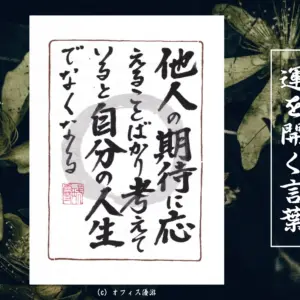 運を開く言葉
他人の期待に応
えることばかり考えて
いると自分の人生
でなくなる
(c) オフィス湧沼